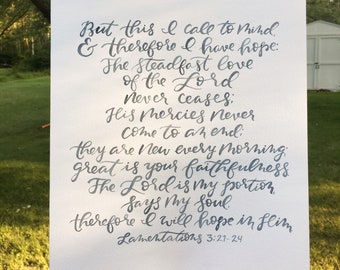 But this I call to mind
& therefore I have hope:
The steadfast love
of the Lord
never ceases;
His mercies never
come to an end;
they are new every morning;
great is your faithfulness
The Lord is my portion
says my soul
therefore I will hope in Him
Lamentations 3:21-24